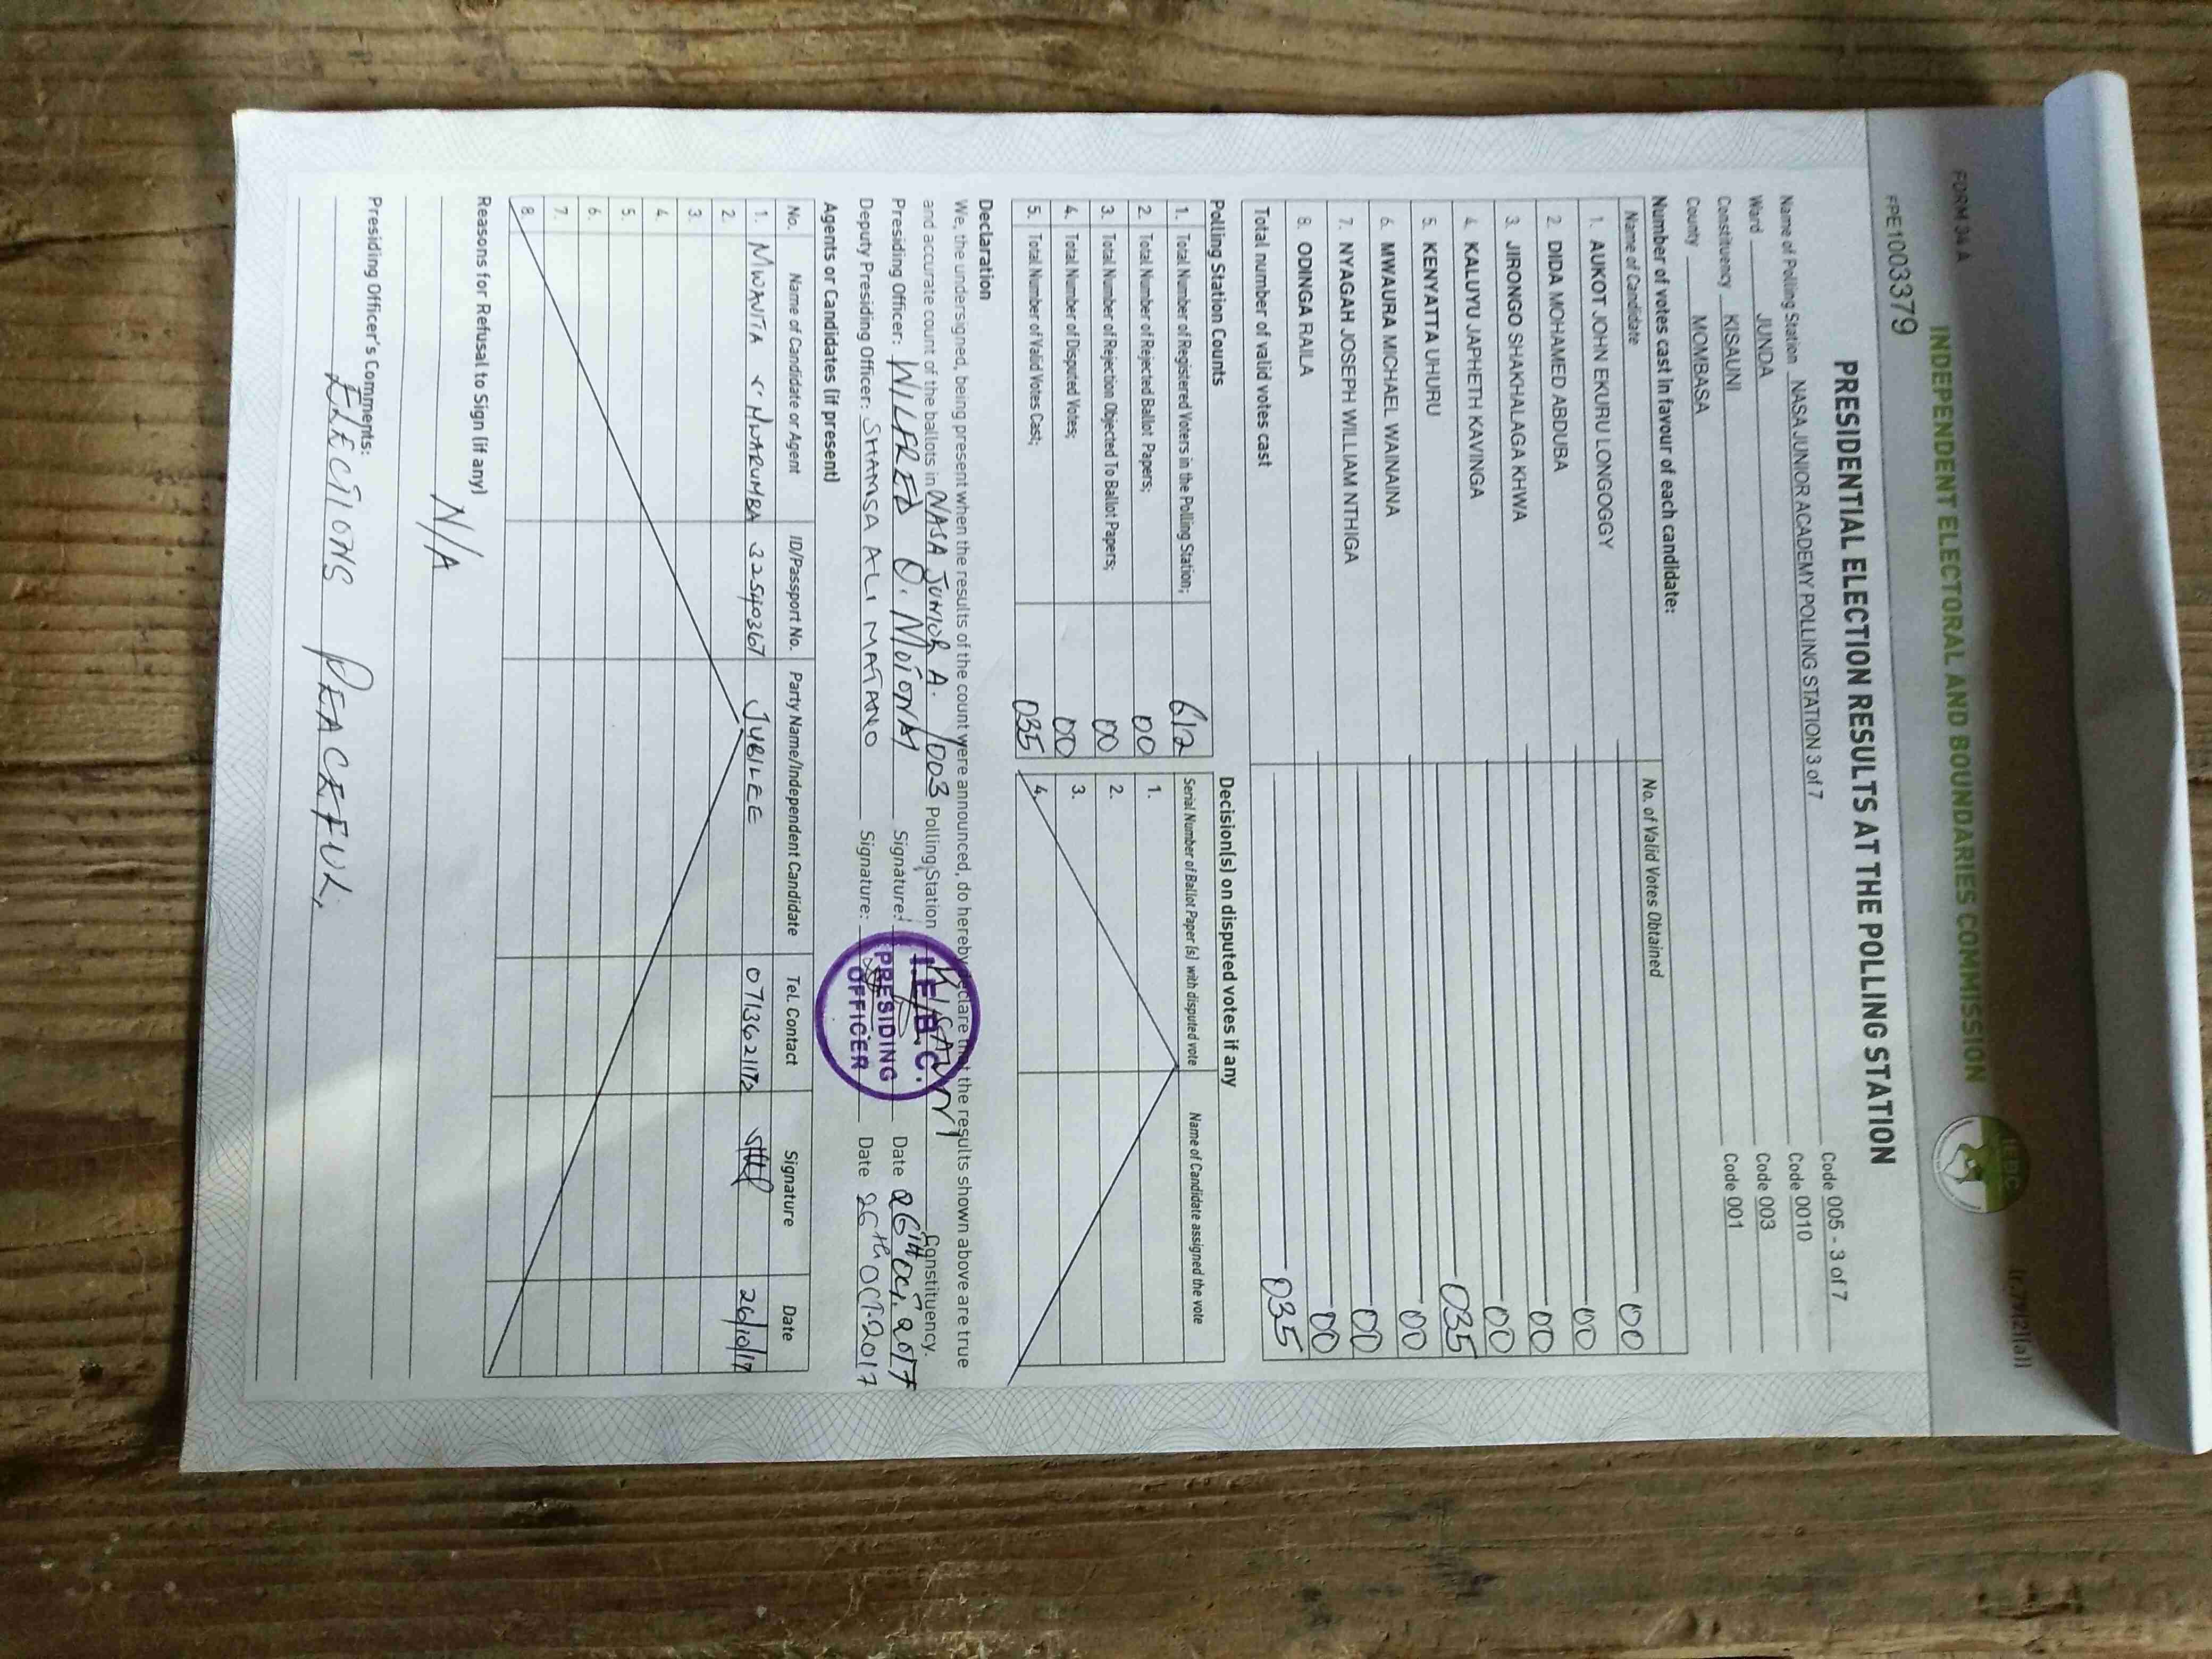 FORM 34 A
(r.79(2)(a))
INDEPENDENT ELECTORAL AND BOUNDARIES COMMISSION
IEBC
FPE1003379
PRESIDENTIAL ELECTION RESULTS AT THE POLLING STATION
Name of Polling Station NASA JUNIOR ACADEMY POLLING STATION 3 of 7 Code 005 - 3 of 7
Ward JUNDA Code 0010
Constituency KISAUNI Code 003
County MOMBASA Code 001
Number of votes cast in favour of each candidate:
Name of Candidate No. of Valid Votes Obtained
1. AUKOT JOHN EKURU LONGOGGY 00
2. DIDA MOHAMED ABDUBA 00
3. JIRONGO SHAKHALAGA KHWA 00
4. KALUYU JAPHETH KAVINGA 00
5. KENYATTA UHURU 035
6. MWAURA MICHAEL WAINAINA 00
7. NYAGAH JOSEPH WILLIAM NTHIGA 00
8. ODINGA RAILA 00
Total number of valid votes cast 035
Polling Station Counts
1. Total Number of Registered Voters in the Polling Station; 612
2. Total Number of Rejected Ballot Papers; 00
3. Total Number of Rejection Objected To Ballot Papers; 00
4. Total Number of Disputed Votes; 00
5. Total Number of Valid Votes Cast; 035
Decision(s) on disputed votes if any
Serial Number of Ballot Paper (s) with disputed vote Name of Candidate assigned the vote
1.
2.
3.
4.
Declaration
We, the undersigned, being present when the results of the count were announced, do hereby declare that the results shown above are true
and accurate count of the ballots in NASA JUNIOR A. 003 Polling Station KISAUNI Constituency.
Presiding Officer: WILFRED O. Signature: Date 26TH OCT. 2017
Deputy Presiding Officer: SHAMSA ALI MATANO Signature: Date 26th OCT. 2017
I.E.B.C.
PRESIDING
OFFICER
Agents or Candidates (if present)
No. Name of Candidate or Agent ID/Passport No. Party Name/Independent Candidate Tel. Contact Signature Date
1. MWANITA MWARUMBA 32540367 JUBILEE 0713621170 26/10/17
2.
3.
4.
5.
6.
7.
8.
Reasons for Refusal to Sign (if any)
N/A
Presiding Officer's Comments:
ELECTIONS PEACEFUL.